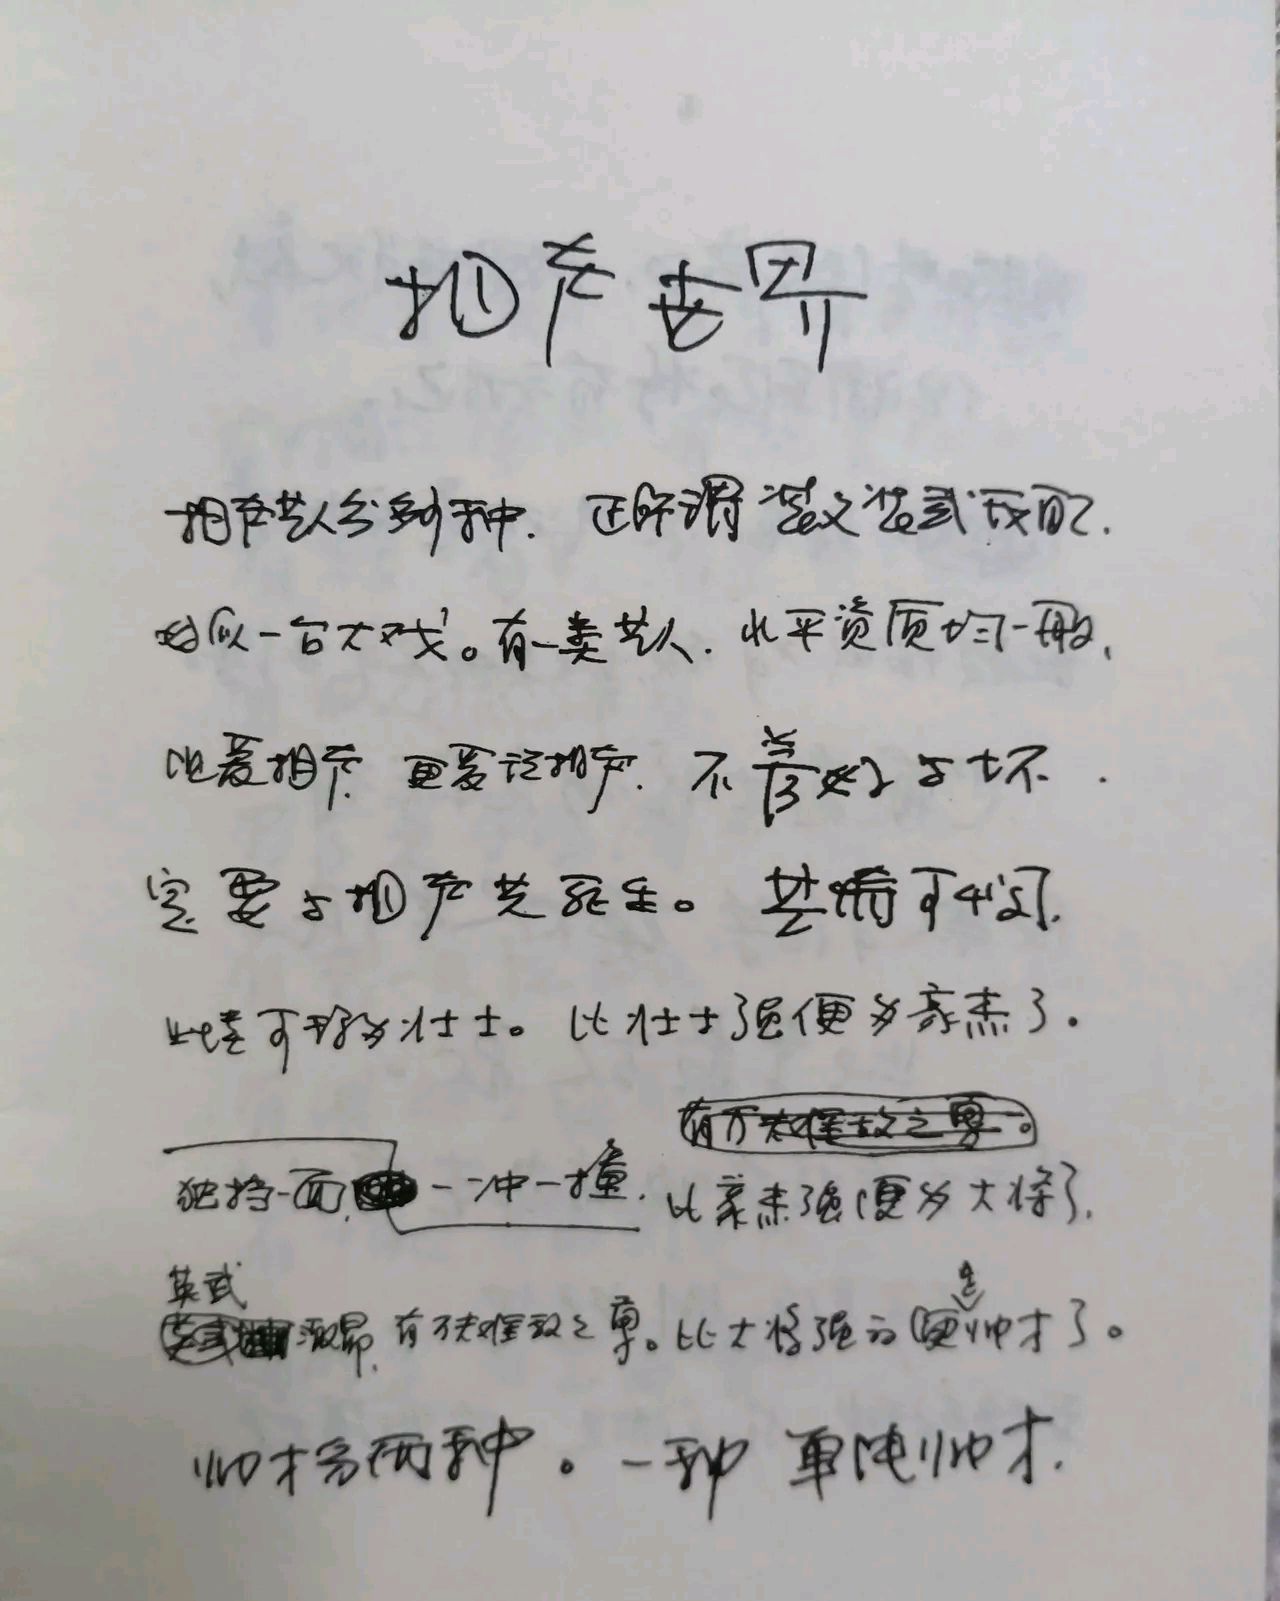 相声世界
相声艺人分多种. 正所谓 装文装武我自己.
好似一台大戏。有一类艺人. 水平资质均一般.
但爱相声. 更爱说相声. 不善好与坏.
定要与相声共死生。其情可悯.
此类可称为壮士。比壮士强便为豪杰了。
有万夫难敌之勇。
独挡一面, 一冲一撞. 比豪杰强便为大将了.
英武
激昂, 有万夫难敌之勇。比大将强的便是帅才了。
帅才分两种。一种 单纯帅才.